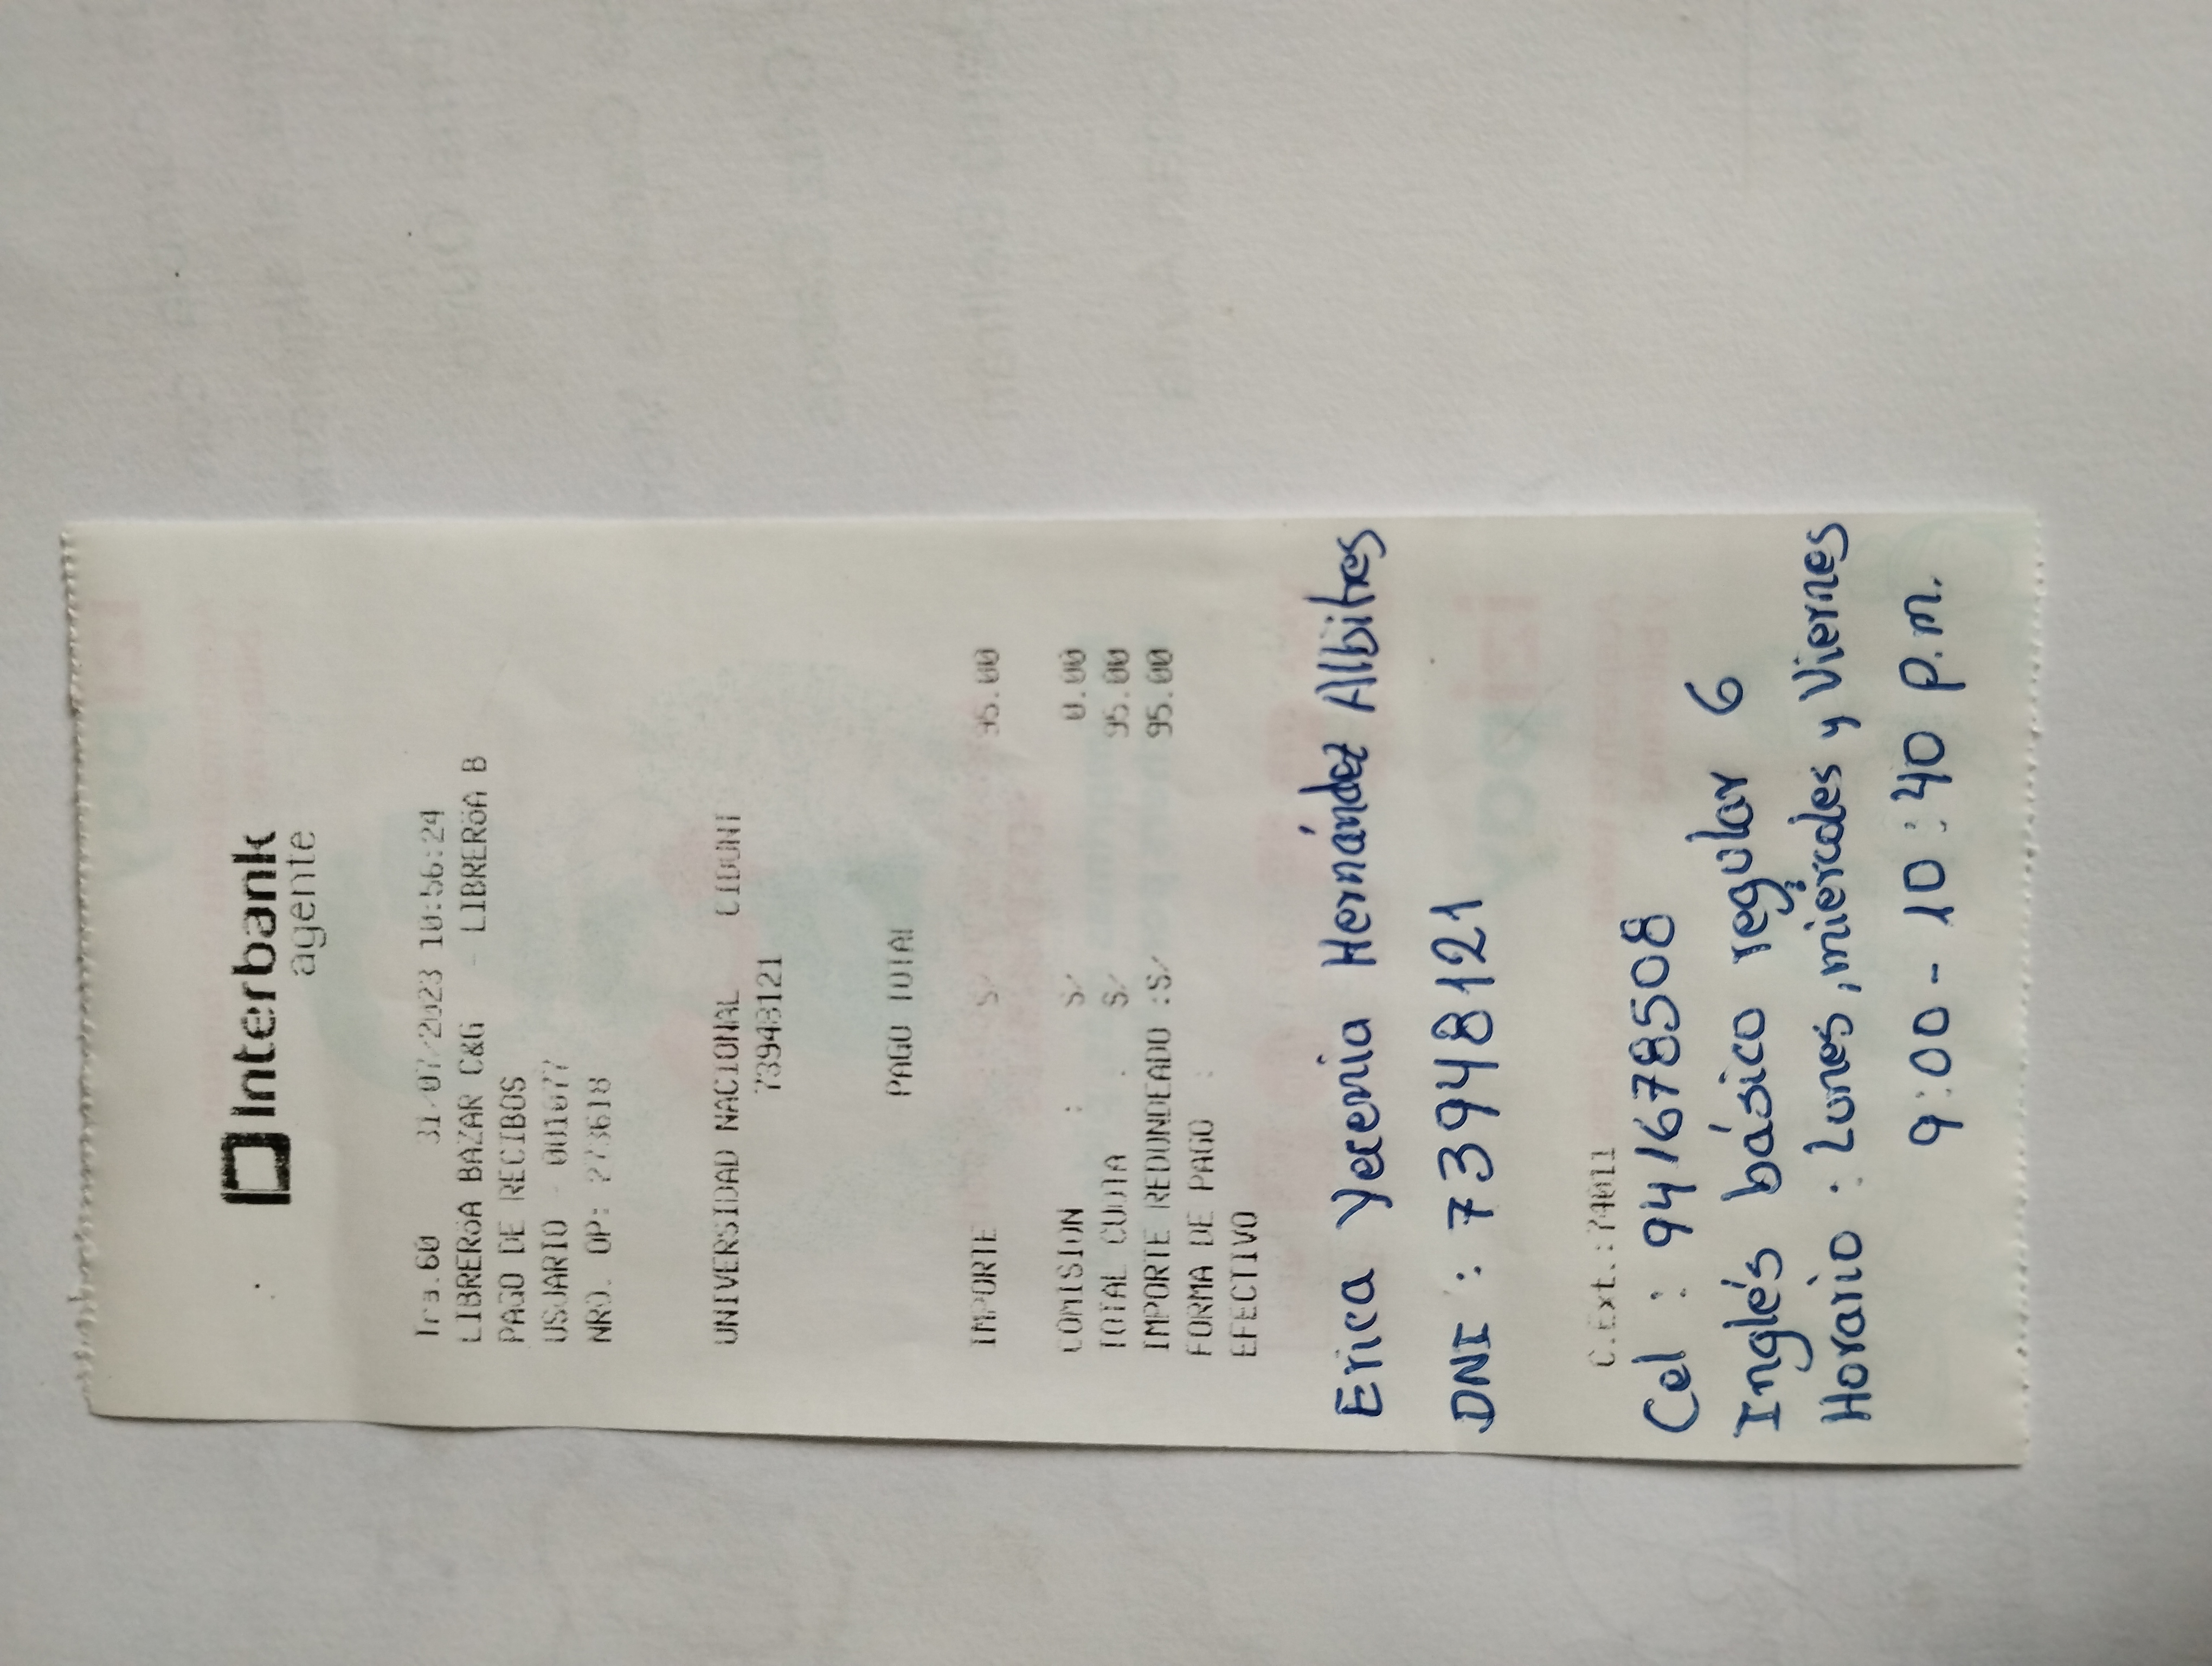 Interbank
agente
Tra.60 31/07/2023 10:56:24
LIBREROA BAZAR C&G - LIBREROA B
PAGO DE RECIBOS
USUARIO - 001677
NRO. OP: 273618
UNIVERSIDAD NACIONAL CIDUNT
73948121
PAGO TOTAL
IMPORTE S/ 95.00
COMISION : S/ 0.00
TOTAL CUOTA : S/ 95.00
IMPORTE REDONDEADO :S/ 95.00
FORMA DE PAGO :
EFECTIVO
Erica Yesenia Hernández Albites
DNI : 73948121
C.Ext.:74011
Cel : 941678508
Inglés básico regular 6
Horario : Lunes, miércoles y Viernes
9:00 - 10:40 p.m.